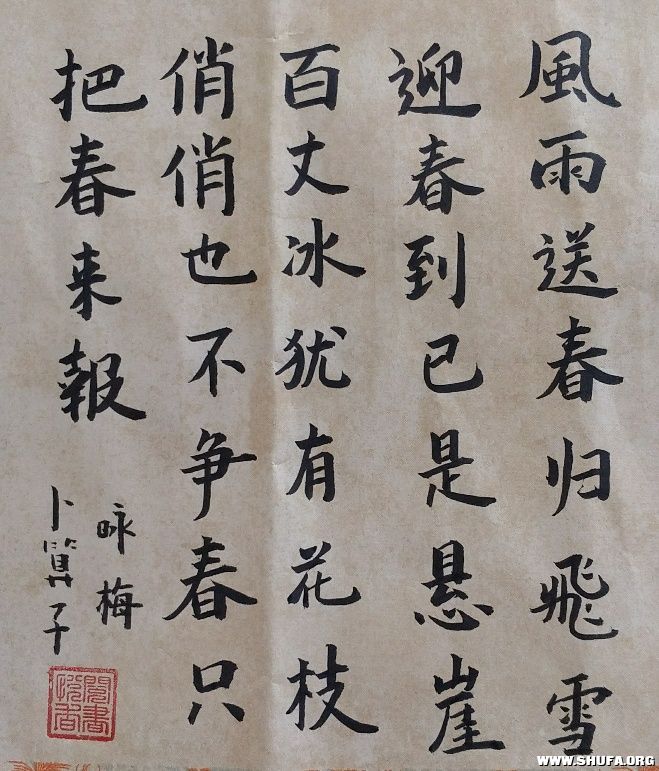 風雨送春归飛雪
迎春到已是悬崖
百丈冰犹有花枝
俏俏也不争春只
把春来報
咏梅
卜算子
WWW.SHUFA.ORG